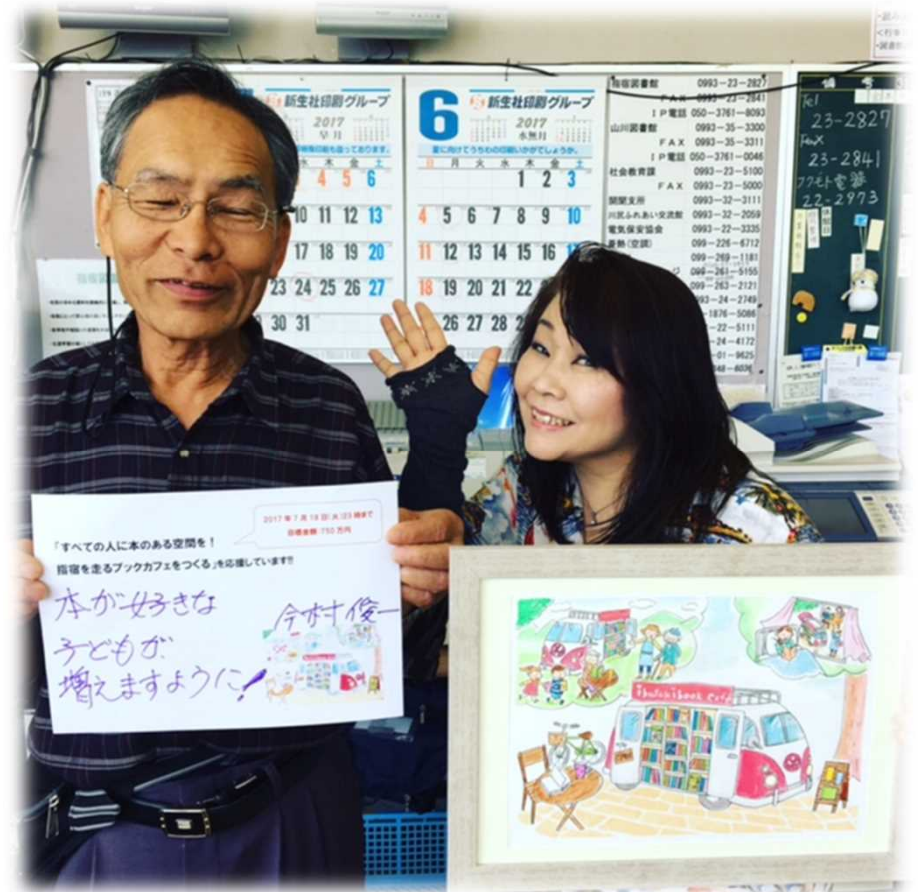 新生社印刷グループ
2017
皐月
木 金 土
4 5 6
10 11 12 13
17 18 19 20
23 24 25 26 27
30 31
6
新生社印刷グループ
2017
水無月
夏に向けてうちわの印刷いかがでしょうか。
日 月 火 水 木 金 土
1 2 3
4 5 6 7 8 9 10
11 12 13 14 15 16
18 19 20 21 22
26 27 28
指宿図書館 0993-23-2827
FAX 0993-23-2841
IP電話 050-3761-8093
山川図書館 0993-35-3300
FAX 0993-35-3311
IP電話 050-3761-0046
社会教育課 0993-23-5100
FAX 0993-23-5000
開聞支所 0993-32-3111
川尻ふれあい交流館 0993-32-2059
電気保安協会 0993-22-3335
099-226-6712
099-269-1181
099-261-5155
099-263-2121
93-24-2749
-1876-5086
-22-5111
-24-4172
-01-9625
Tel
23-2827
Fax
23-2841
22-2973
2017年7月19日(水)23時まで
目標金額:750万円
「すべての人に本のある空間を!
指宿を走るブックカフェをつくる」を応援しています!!
本が好きな
子どもが
増えますように!
今村俊一
ibusukibook Cafe